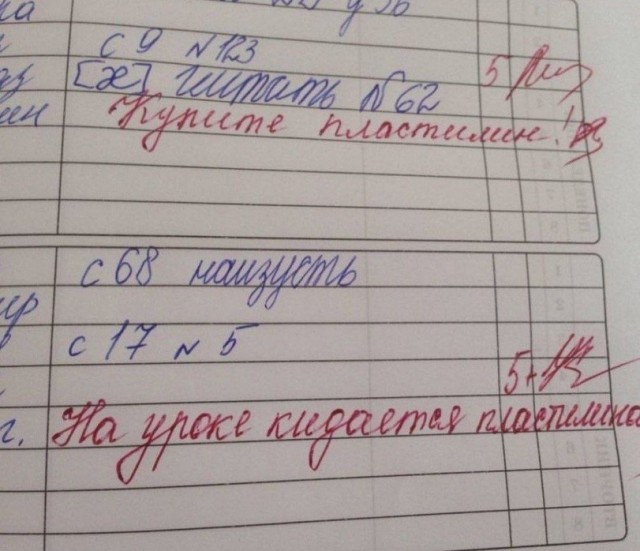 ка
с 9 N 123
[х] читать №62 5
Купите пластилин!
с 68 наизусть
с 17 N 5
5+
г. На уроке кидается пластилином
ВТОРНИК